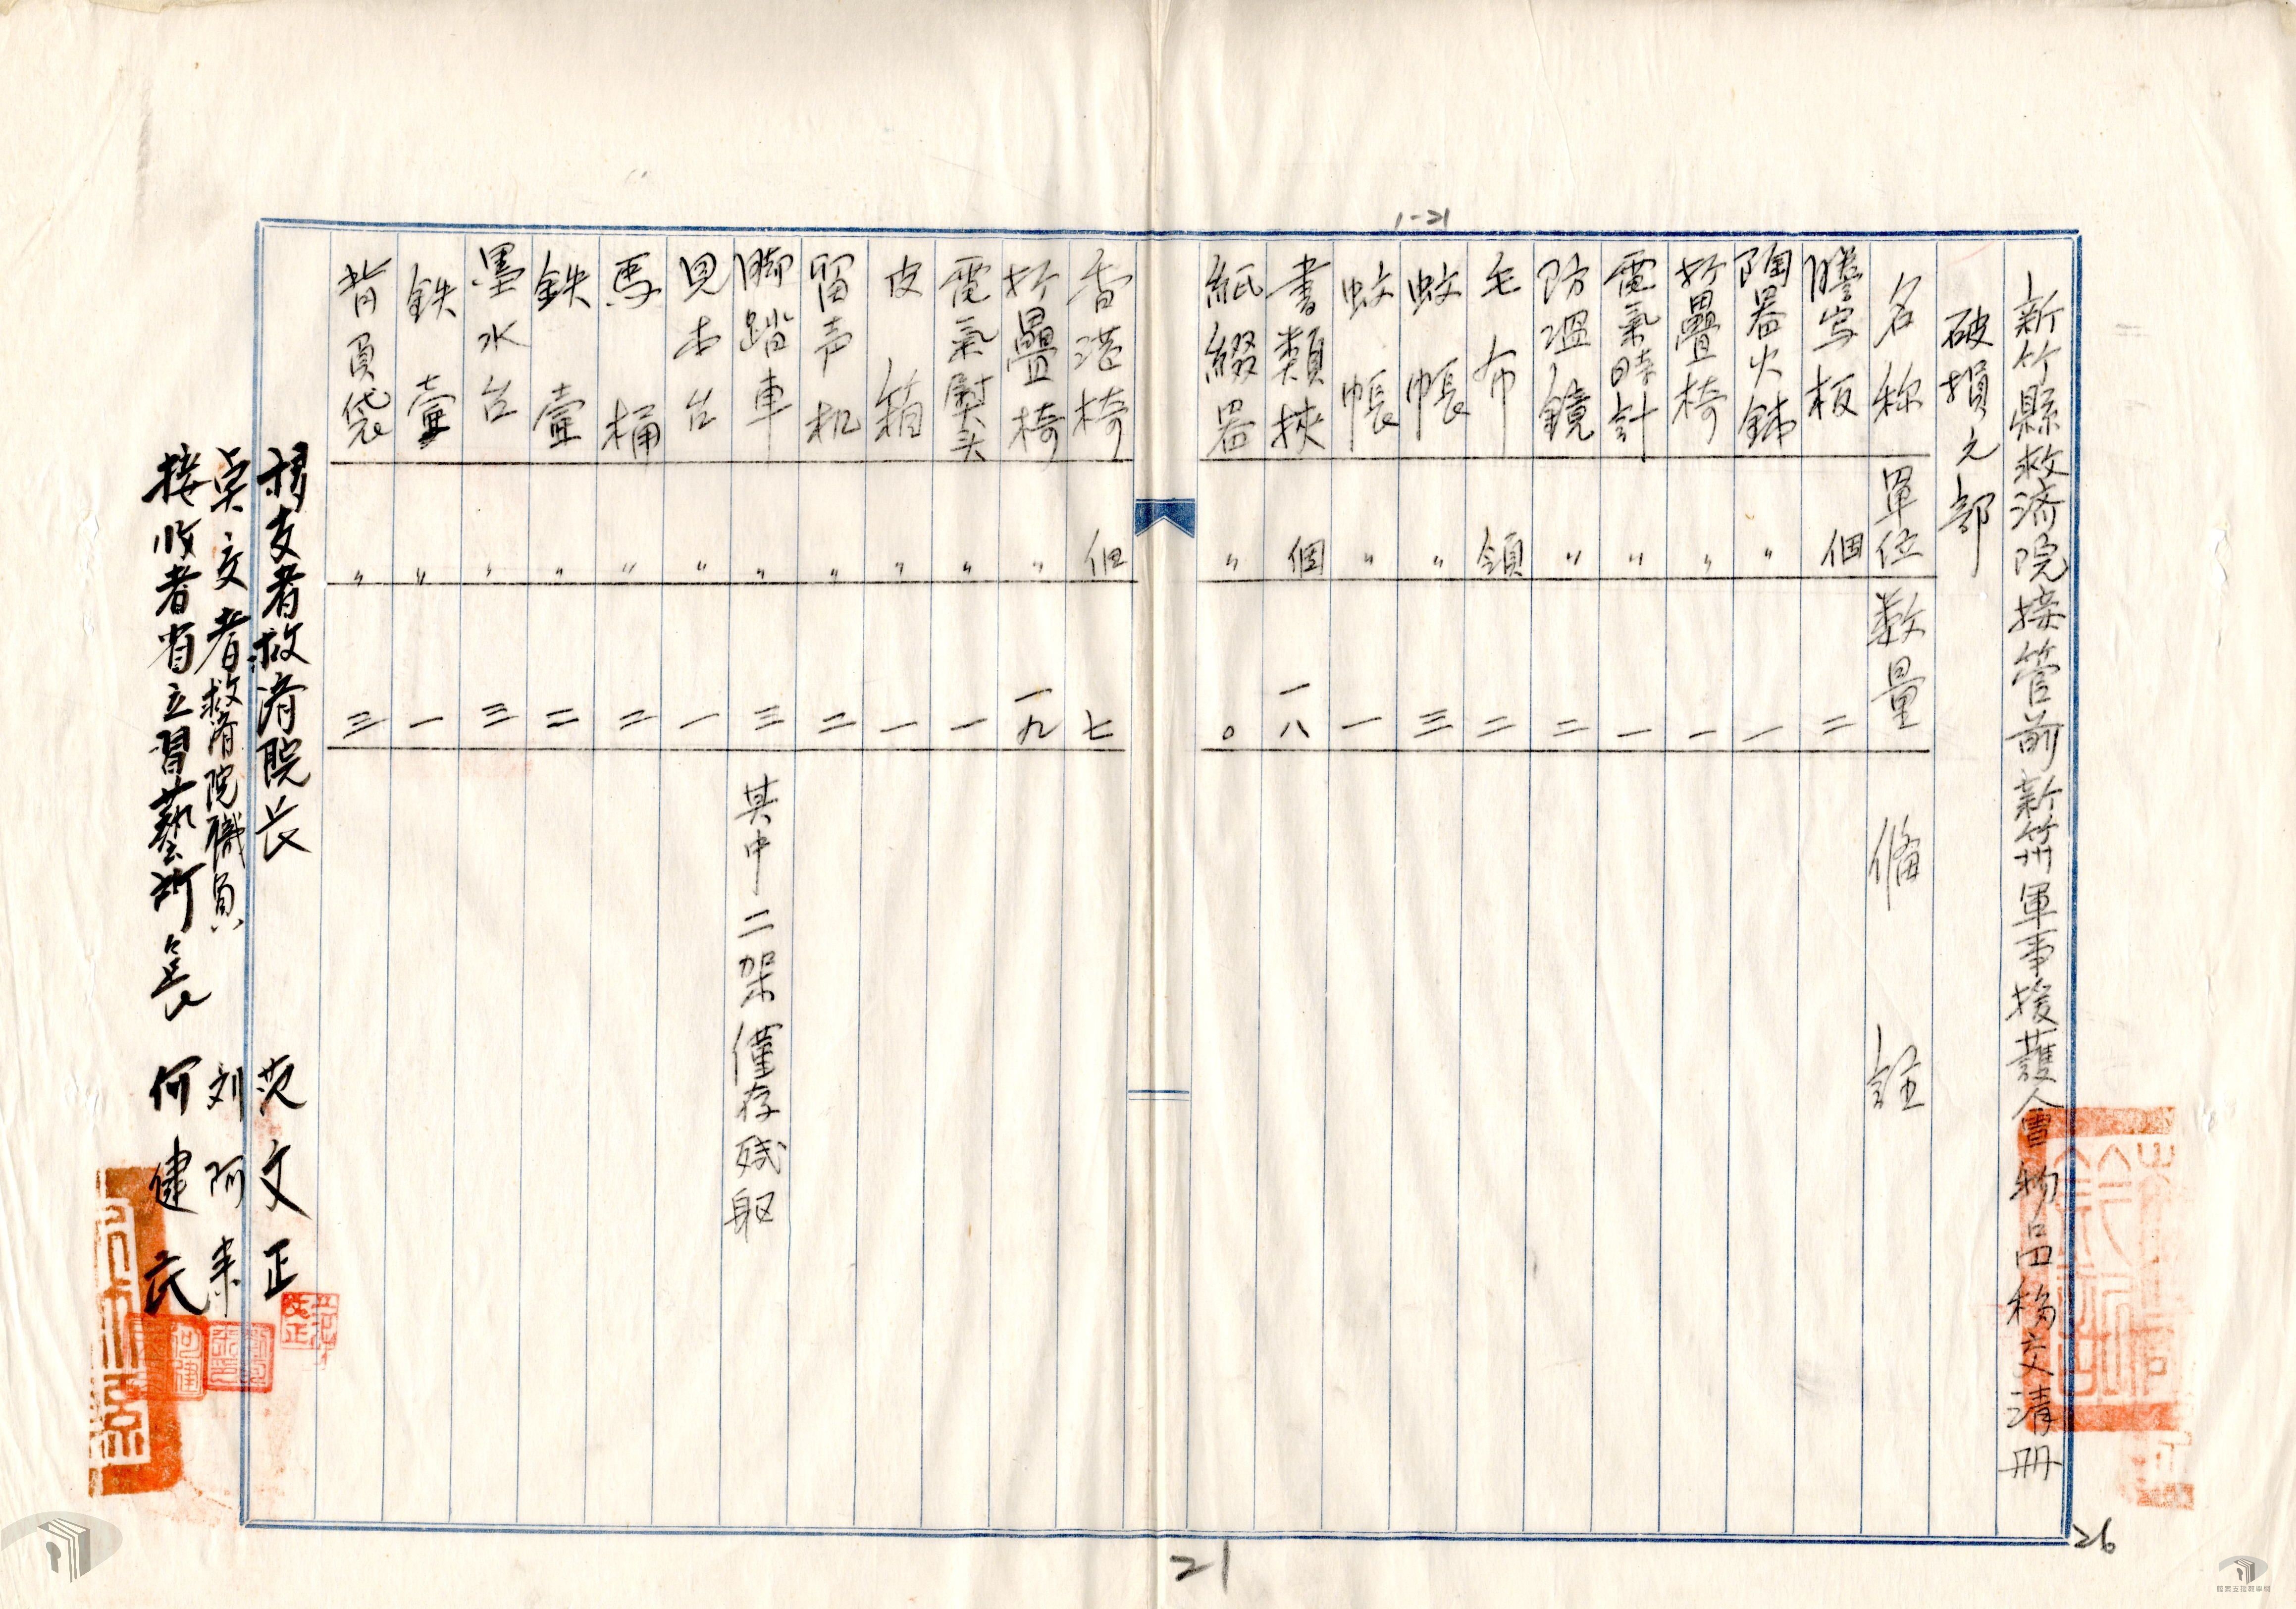 1-21
新竹縣救济院接管前新竹州軍事援護會物品移交清冊
破損之部
名称 單位 数量 俻註
謄写板 個 二
陶器火鉢 〃 一
折疊椅 〃 一
電氣時計 〃 一
防温鏡 〃 二
毛布 領 二
蚊帳 〃 三
蚊帳 〃 一
書類挾 個 一八
紙綴器 〃 〇
香港椅 個 七
折疊椅 〃 一九
電氣熨头 〃 一
皮箱 〃 一
留声机 〃 二
脚踏車 〃 三 其中二架僅存残躯
見本台 〃 一
馬桶 〃 二
鉄壷 〃 二
墨水台 〃 三
鉄壷 〃 一
背負袋 〃 三
移交者救濟院长 范文正
点交者救濟院職員 刘阿来
接收者省立習藝所長 何健民
21
26
檔案支援教學網